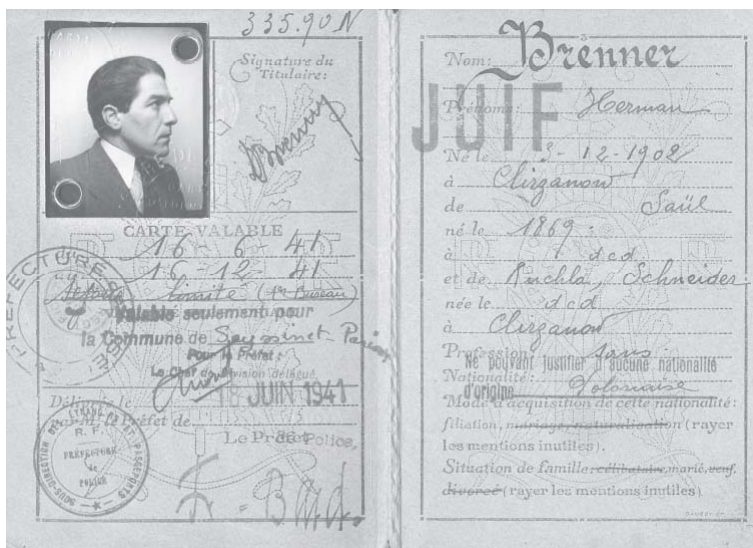 335.90 N
Signature du
Titulaire:
CARTE VALABLE
16-6-41
16-12 41
Valable seulement pour
la Commune de Seyssinet-Pariset
Pour le Préfet:
Le Chef de Division délégué
18 JUIN 1941
Délivré le
Par M. le Préfet de Police,
Le Préfet
SOUS-DIRECTION DES ÉTRANGERS PASSEPORTS
R. F.
PRÉFECTURE
de
POLICE
Nom: Brenner
JUIF
Prénoms: Herman
Né le 3-12-1902
à Chrzanow
de Saül
né le 1869
à dcd
et de Ruchla, Schneider
née le dcd
à Chrzanow
Profession: sans
Ne pouvant justifier d'aucune nationalité
Nationalité: Polonaise
d'origine
Mode d'acquisition de cette nationalité:
filiation, mariage, naturalisation (rayer
les mentions inutiles).
Situation de famille: célibataire, marié, veuf,
divorcé (rayer les mentions inutiles)